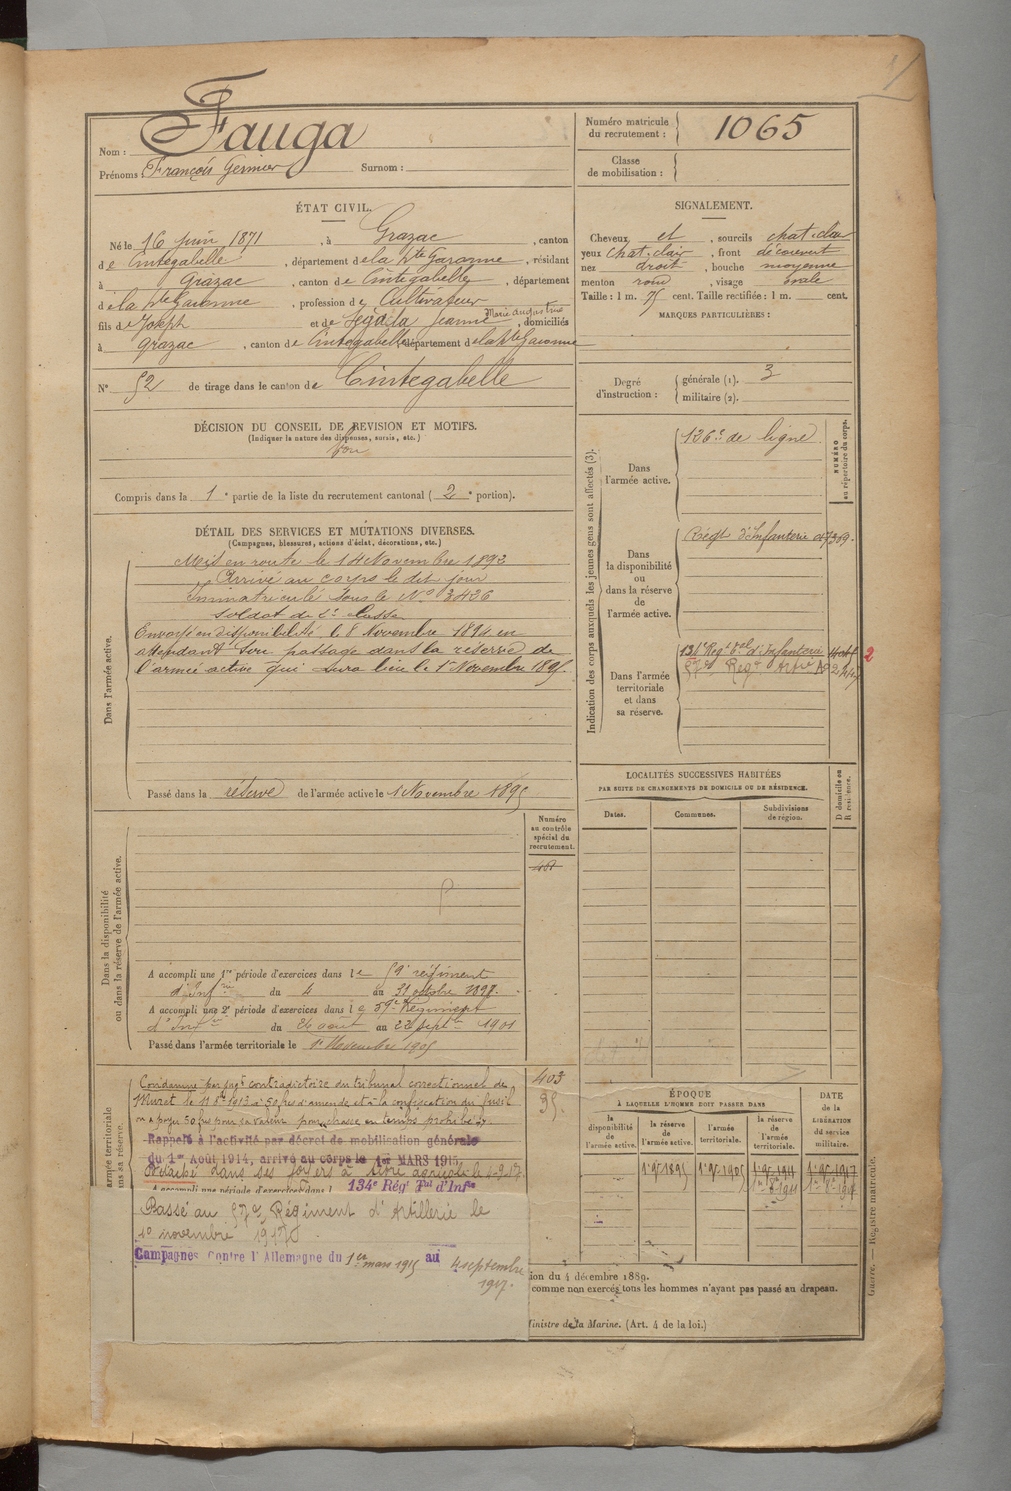 1
Nom : Fauga
Prénoms : François Germier Surnom :
Numéro matricule du recrutement : 1065
Classe de mobilisation :
ÉTAT CIVIL.
Né le 16 juin 1871, à Grazac, canton
de Cintegabelle, département de la Hte Garonne, résidant
à Grazac, canton de Cintegabelle, département
de la Hte Garonne, profession de Cultivateur
fils de Joseph et de Ségala Jeanne Marie Augustine, domiciliés
à Grazac, canton de Cintegabelle, département de la Hte Garonne
N° 52 de tirage dans le canton de Cintegabelle
SIGNALEMENT.
Cheveux et, sourcils chat. clair
yeux chat. clair, front découvert
nez droit, bouche moyenne
menton rond, visage ovale
Taille : 1 m. 75 cent. Taille rectifiée : 1 m. cent.
MARQUES PARTICULIÈRES :
Degré d'instruction :
générale (1). 3
militaire (2).
DÉCISION DU CONSEIL DE REVISION ET MOTIFS.
(Indiquer la nature des dispenses, sursis, etc.)
Bon
Compris dans la 1e partie de la liste du recrutement cantonal (2e portion).
DÉTAIL DES SERVICES ET MUTATIONS DIVERSES.
(Campagnes, blessures, actions d'éclat, décorations, etc.)
Dans l'armée active.
Mis en route le 14 Novembre 1892
Arrivé au corps le dit jour
Immatriculé sous le N° 3436
Soldat de 2e classe
Envoyé en disponibilité le 8 Novembre 1894 en
attendant son passage dans la réserve de
l'armée active qui aura lieu le 1er Novembre 1895.
Passé dans la réserve de l'armée active le 1 Novembre 1895
Indication des corps auxquels les jeunes gens sont affectés (3).
NUMÉRO au répertoire du corps.
Dans l'armée active.
136e de ligne
Dans la disponibilité ou dans la réserve de l'armée active.
Régt d'Infanterie
Dans l'armée territoriale et dans sa réserve.
134e Régt Tal d'Infanterie
57e Régt Artie
2
LOCALITÉS SUCCESSIVES HABITÉES
PAR SUITE DE CHANGEMENTS DE DOMICILE OU DE RÉSIDENCE.
Dates. Communes. Subdivisions de région.
D domicile ou R résidence.
Dans la disponibilité ou dans la réserve de l'armée active.
Numéro au contrôle spécial du recrutement.
A accompli une 1re période d'exercices dans le 59e régiment
d'Infrie du 4 au 31 octobre 1898.
A accompli une 2e période d'exercices dans le 59e Régiment
d'Infie du 26 août au 22 septbre 1901
Passé dans l'armée territoriale le 1er Novembre 1905
armée territoriale
ans sa réserve.
403
35.
Condamné par jugt contradictoire du tribunal correctionnel de
Muret le 11 8bre 1913 à 50 frcs d'amende et à la confiscation du fusil
ou à payer 50 frcs pour sa valeur pour chasse en temps prohibé.
Rappelé à l'activité par décret de mobilisation générale
du 1er Août 1914, arrivé au corps le 1er MARS 1915.
dans ses foyers à titre agricole le 5-9-17.
A accompli une période d'exercices dans l 134e Rég Tal d'Infie
Passé au 57e Régiment d'Artillerie le
1er novembre 1917
Campagnes Contre l'Allemagne du 1er mars 1915 au 4 septembre
1917.
ÉPOQUE
À LAQUELLE L'HOMME DOIT PASSER DANS
la disponibilité de l'armée active.
la réserve de l'armée active.
l'armée territoriale.
la réserve de l'armée territoriale.
DATE de la LIBÉRATION du service militaire.
1er 9bre 1895 1er 9bre 1905 1er 9bre 1911 1er 9bre 1917
1er 8bre 1911
ion du 4 décembre 1889.
comme non exercés tous les hommes n'ayant pas passé au drapeau.
Ministre de la Marine. (Art. 4 de la loi.)
Guerre. — Registre matricule.